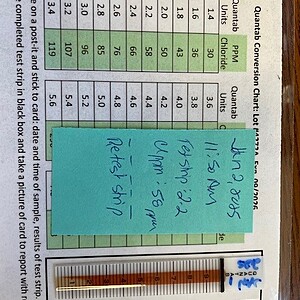 Quantab Conversion Chart Lot
Quantab Units
PPM Chloride
Quantab Units
1.4 30 3.6
1.6 36 3.8
1.8 43 4.0
2.0 50 4.2
2.2 58 4.4
2.4 66 4.6
2.6 76 4.8
2.8 85 5.0
3.0 96 5.2
3.2 107 5.4
3.4 119 5.6
Jan 2 2025
11:50 AM
Test strip: 2.2
Cl ppm: 58 ppm
Retest strip
e on a post-it and stick to card: date and time of sample, results of test strip.
completed test strip in black box and take a picture of card to report with
QUANTAB
9
8
7
6
5
4
3
2
1